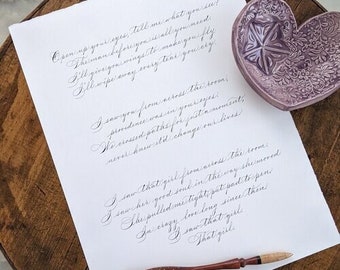 Open up your eyes, tell me what you see?
The man before you is all you need,
I'll give you wings to make you fly
I'll wipe away every tear you cry.
I saw you from across the room,
providence was in your eyes
We crossed paths for just a moment,
never knew it'd change our lives
I saw that girl from across the room
I saw her good soul in the way she moved
She pulled me tight, put pad to pen
In crazy love long since then
I saw that girl
That girl.